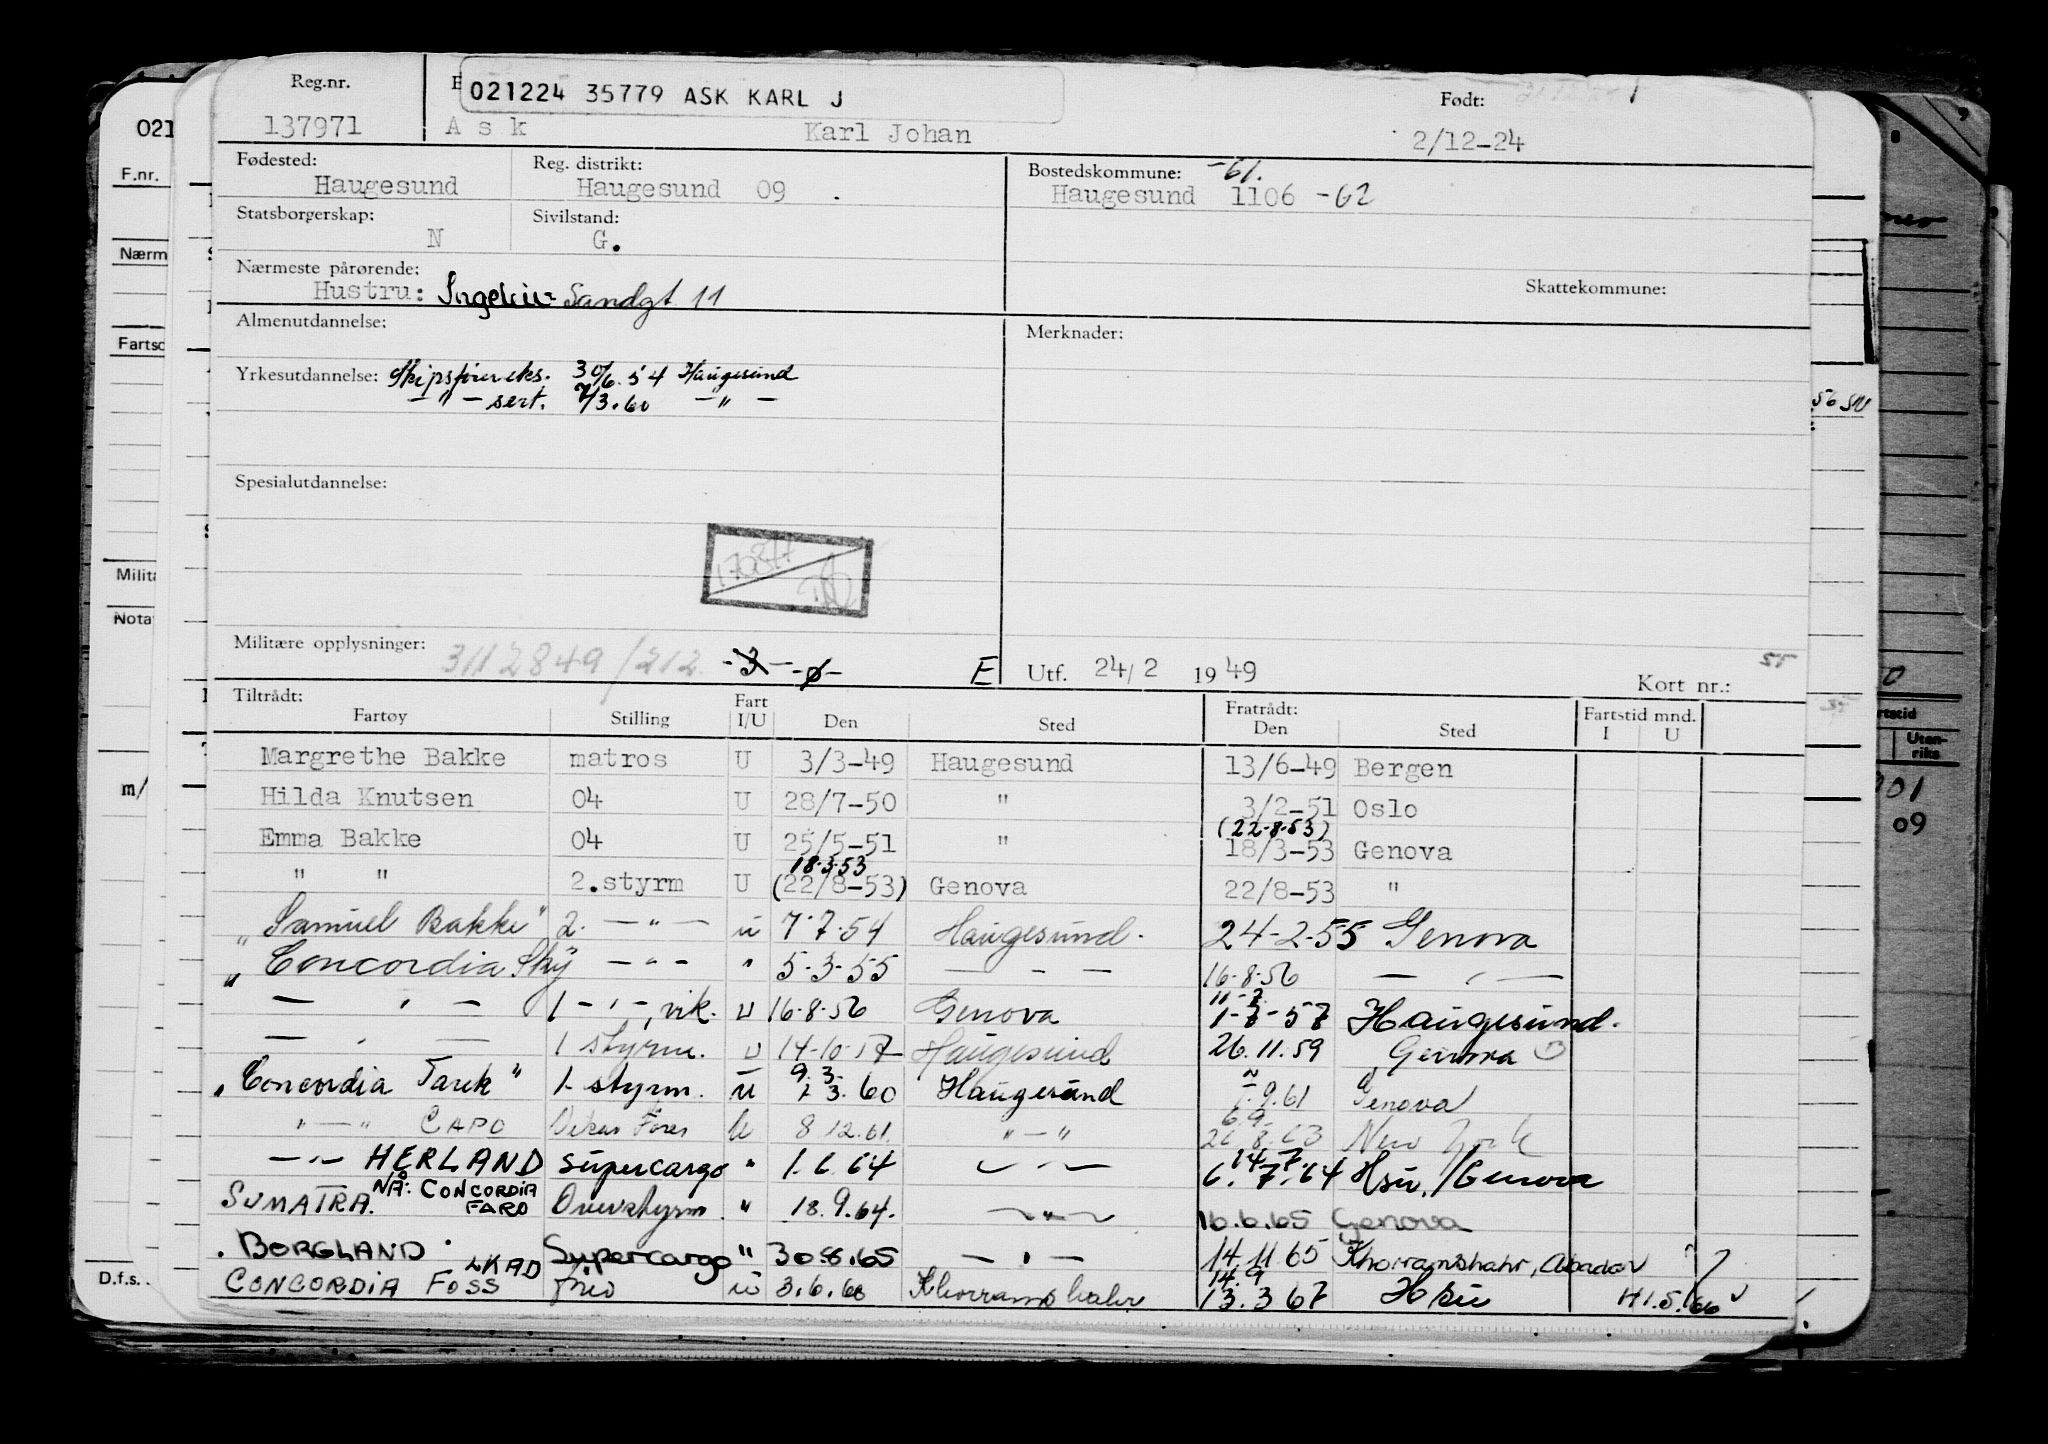 Reg.nr.
021224 35779 ASK KARL J
Født:
137971 Ask Karl Johan 2/12-24
Fødested: Reg. distrikt: Bostedskommune: -61.
Haugesund Haugesund 09 . Haugesund 1106 -62
Statsborgerskap: Sivilstand:
N G.
Nærmeste pårørende:
Hustru: Sandgt 11 Skattekommune:
Almenutdannelse: Merknader:
Yrkesutdannelse: Skipsførereks. 30/6.54 Haugesund
— " — sert. 7/3.60 — " —
Spesialutdannelse:
Militære opplysninger: 3112849/212 -3- -ø- E Utf. 24/2 1949 Kort nr.:
Tiltrådt: Fart Fratrådt: Fartstid mnd.
Fartøy Stilling I/U Den Sted Den Sted I U
Margrethe Bakke matros U 3/3-49 Haugesund 13/6-49 Bergen
Hilda Knutsen 04 U 28/7-50 " 3/2-51 Oslo
(22-8-53)
Emma Bakke 04 U 25/5-51 " 18/3-53 Genova
18.3.53
" " 2.styrm U (22/8-53) Genova 22/8-53 "
"Samuel Bakke" 2. — " — u 7.7.54 Haugesund. 24-2-55 Genova
"Concordia Sky — " — " 5.3.55 — " — 16.8.56 — " —
— " — 1 — " —, vik. u 16.8.56 Genova 1-8-57 Haugesund.
— " — 1 styrm. u 14-10-57 Haugesund 26.11.59 Genova
9.3.
"Concordia Tarek" 1. styrm. u 3.60 Haugesund 9.61 Genova
6.9.
" — " CAPO u 8.12.61. " — " 26.8.63 New York
14.7.
— " — HERLAND supercargo " 1.6.64 — " — 6.7.64 Hsu./Genova
NÅ: CONCORDIA FARO
SUMATRA. Overstyrm. " 18.9.64. — " — 16.6.65 Genova
"BORGLAND" Supercargo " 30.8.65 — " — 14.11.65 Khorramshahr, Abadan
LKAD 14.9
CONCORDIA FOSS u 3.6.66 Khorramshahr 13.3.67 Hsu 5.66
021
F.nr.
Nærm
Fartsc
Milita
Nota
m/
D.f.s.
56 SU
Uten-
riks
901
09